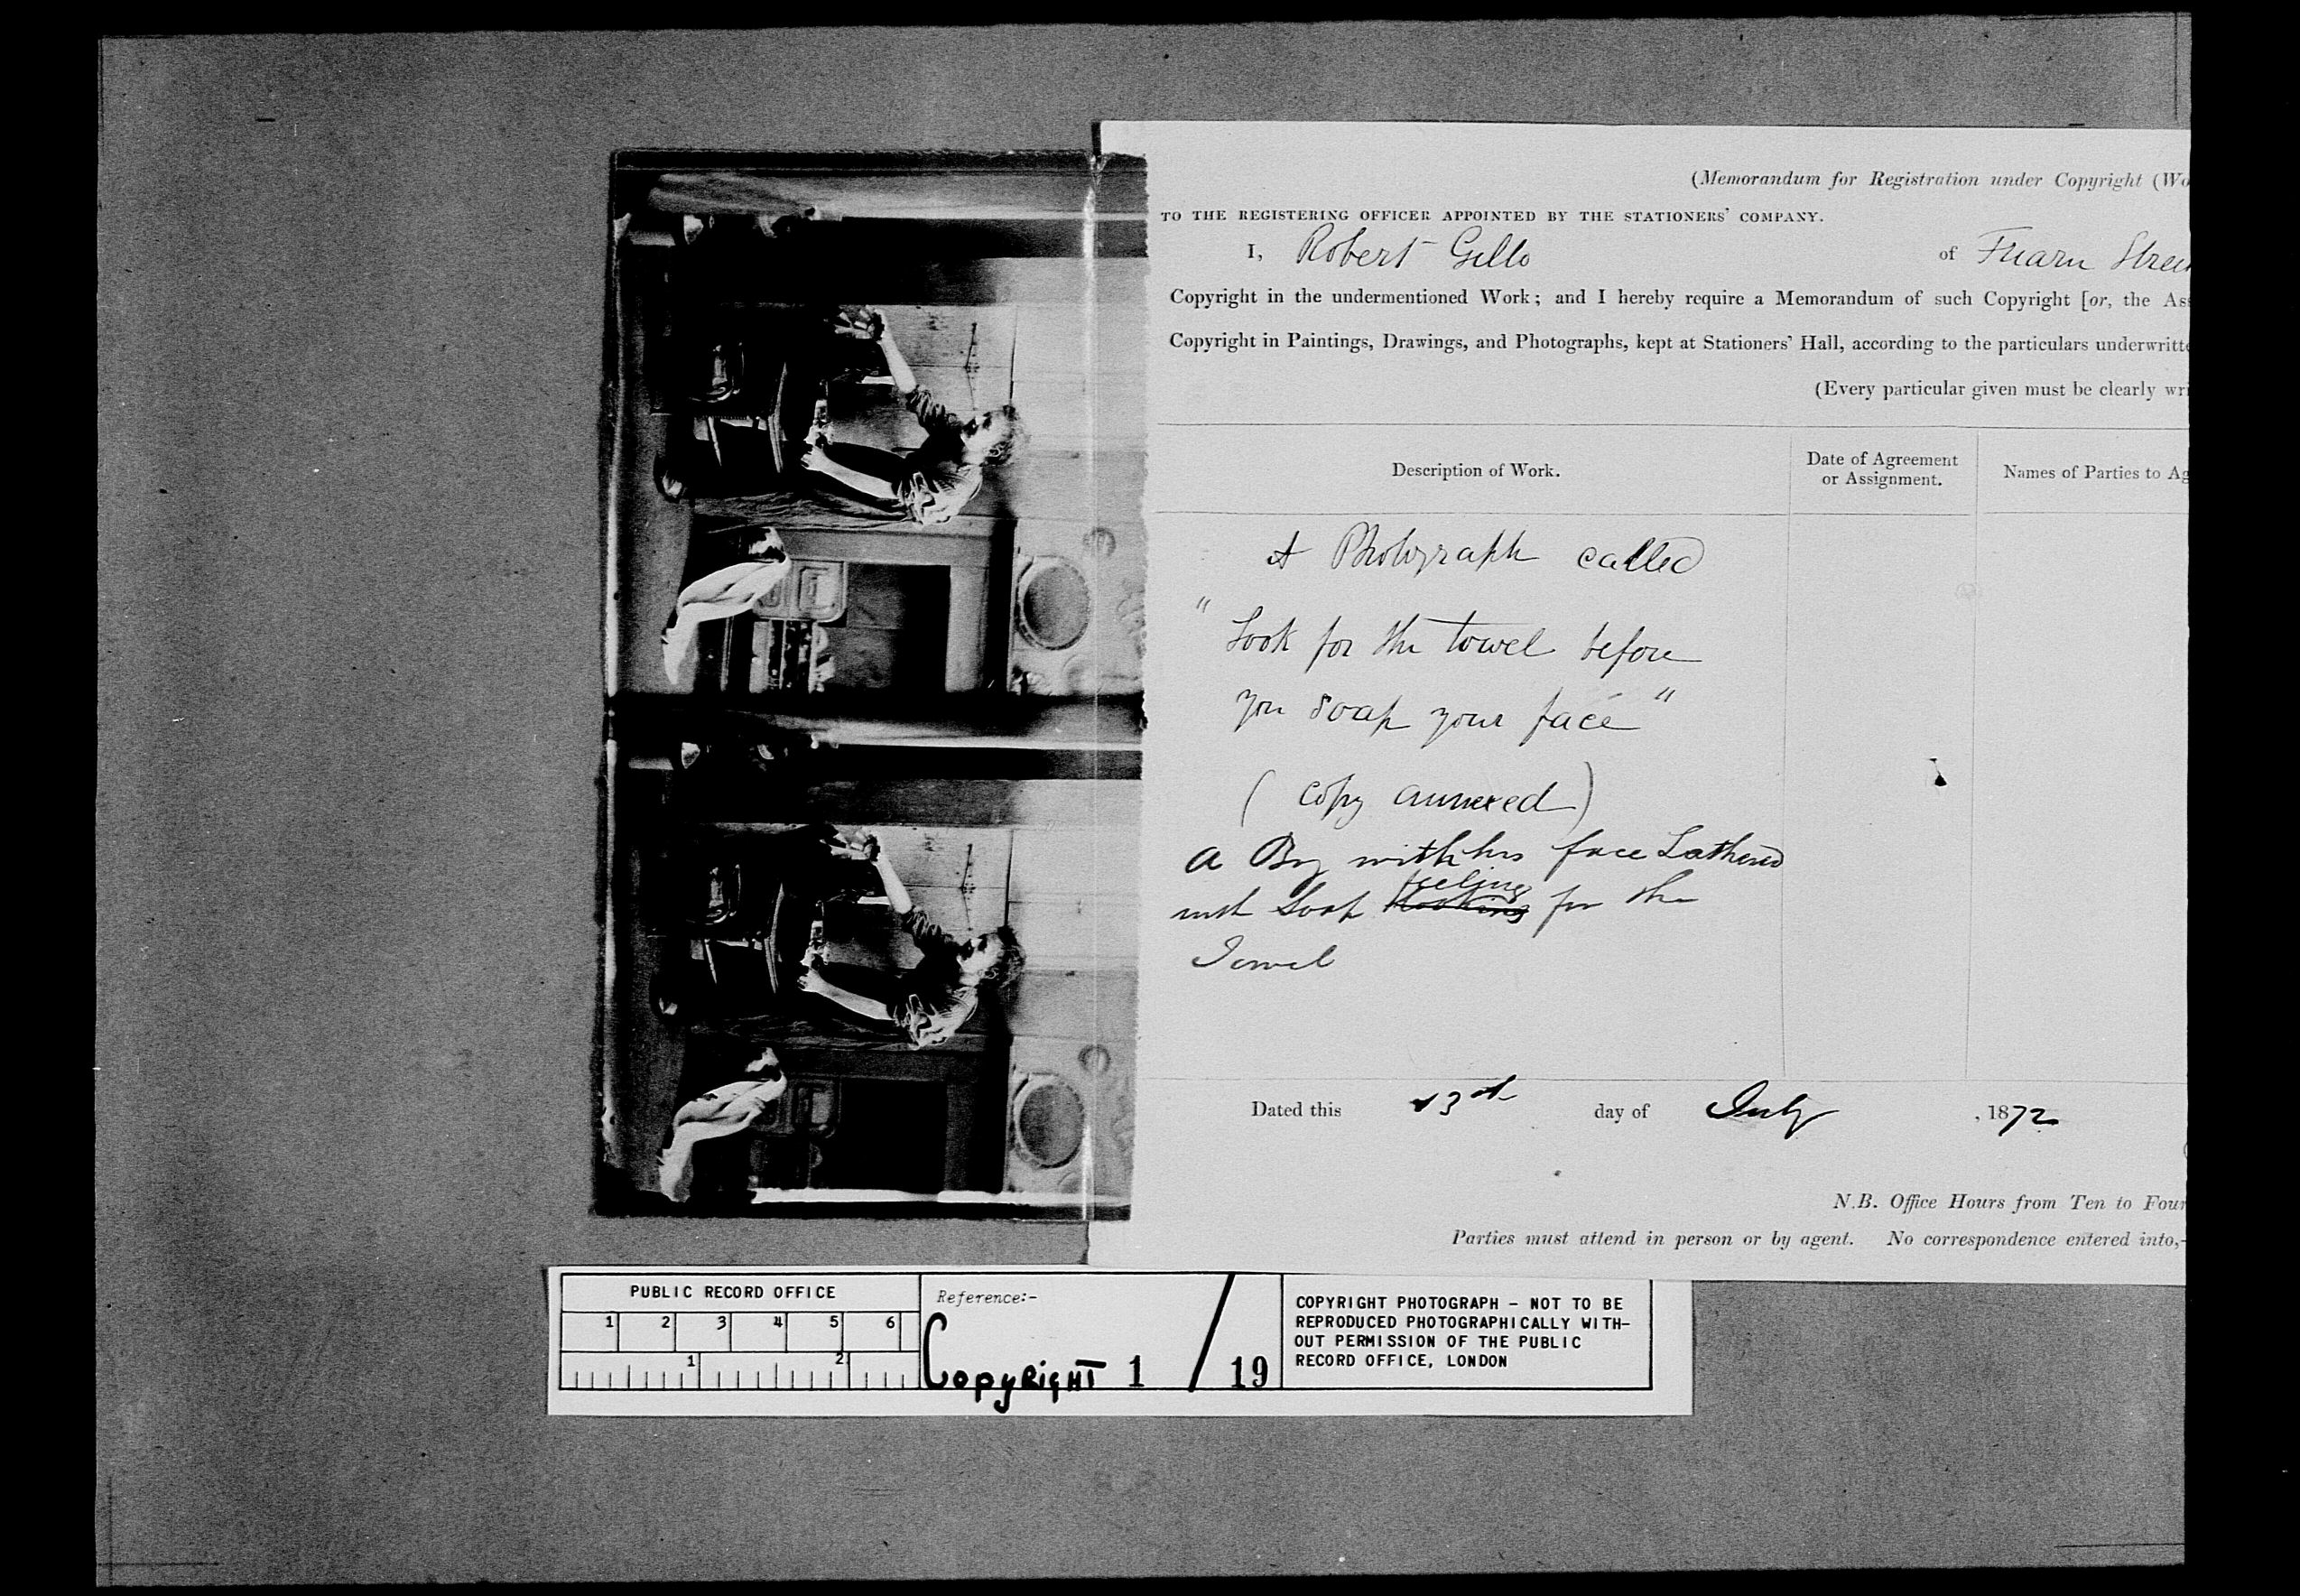 (Memorandum for Registration under Copyright (Wo
TO THE REGISTERING OFFICER APPOINTED BY THE STATIONERS' COMPANY.
I, Robert Gillo of Friarn Stree
Copyright in the undermentioned Work; and I hereby require a Memorandum of such Copyright [or, the Ass
Copyright in Paintings, Drawings, and Photographs, kept at Stationers' Hall, according to the particulars underwritte
(Every particular given must be clearly wri
Description of Work.
Date of Agreement
or Assignment.
Names of Parties to Ag
A Photograph called
"Look for the towel before
you soap your face"
(Copy annexed)
A Boy with his face Lathered
with Soap feeling for the
Towel
Dated this 13th day of July, 1872
N.B. Office Hours from Ten to Four
Parties must attend in person or by agent. No correspondence entered into,-
PUBLIC RECORD OFFICE
1 2 3 4 5 6
1 2
Reference:-
Copyright 1 / 19
COPYRIGHT PHOTOGRAPH - NOT TO BE
REPRODUCED PHOTOGRAPHICALLY WITH-
OUT PERMISSION OF THE PUBLIC
RECORD OFFICE, LONDON